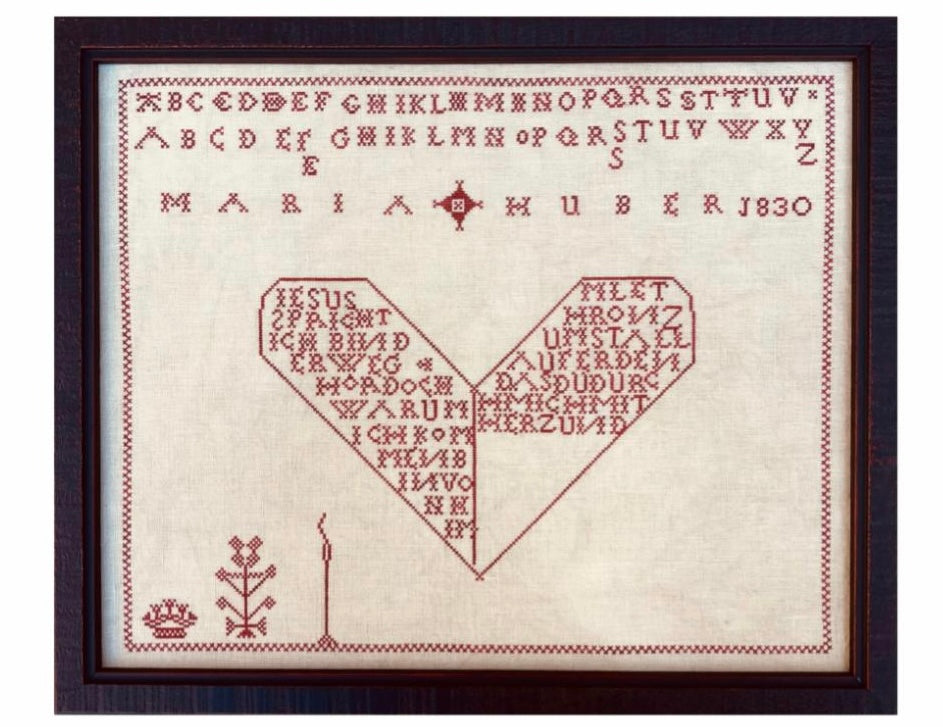 A B C C D D E F G H I K L M M N N O P Q R S S T T U V
A B C D E F G H I K L M N O P Q R S T U V W X Y
E S Z
MARIA HUBER 1830
IESUS
SPRICHT
ICH BIN D
ERWEG
HORDOCH
WARUM
ICHKOM
MEINB
INVO
NH
IM
MLET
HROINZ
UMSTALL
AUFERDEN
DASDUDURC
HMICHMIT
HERZUND